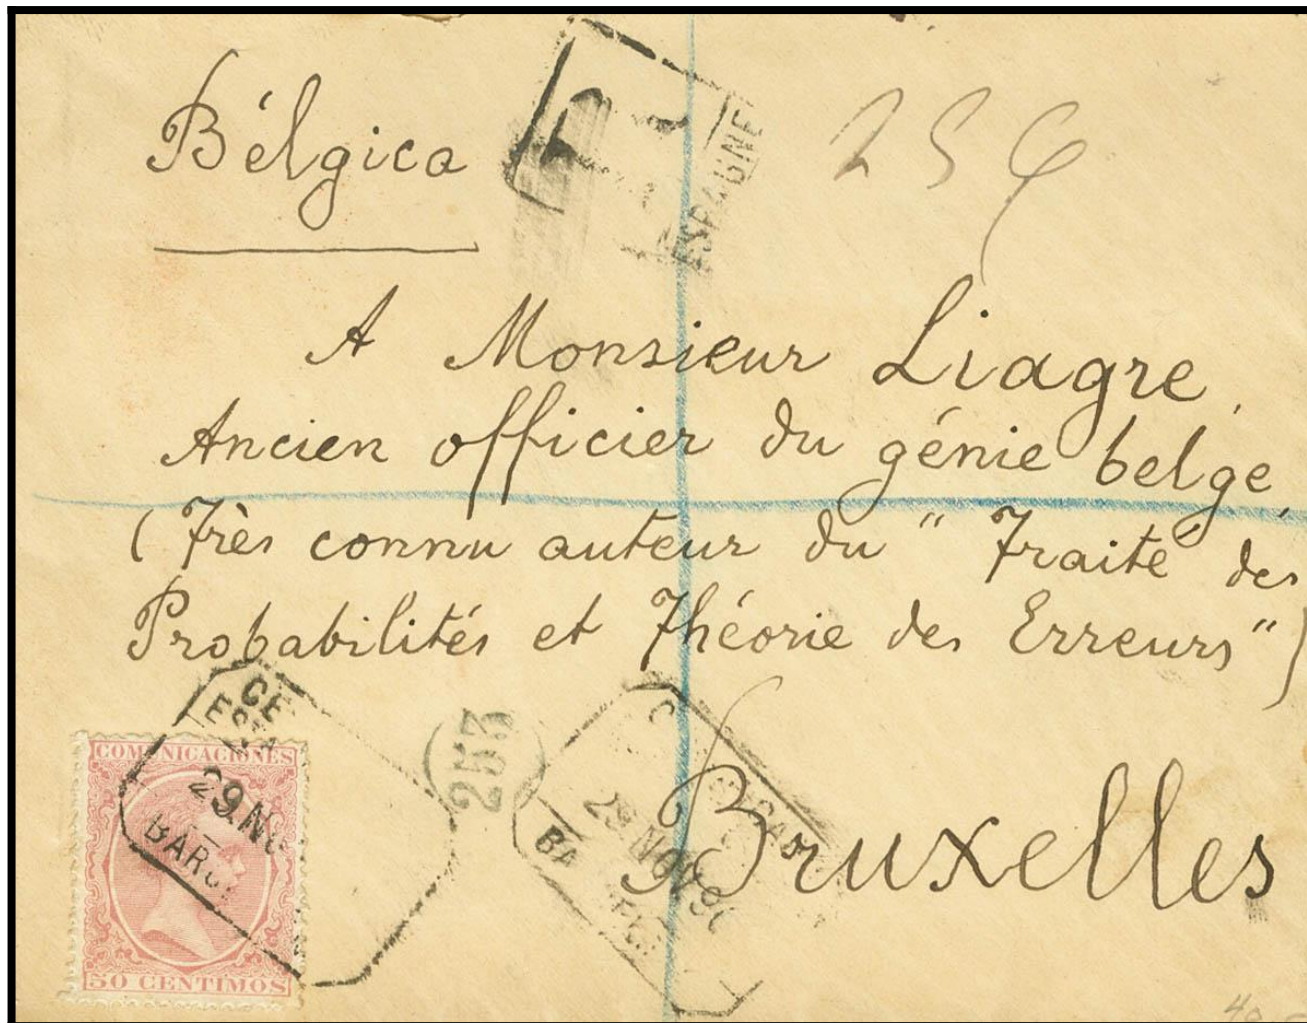 Bélgica
ESPAGNE
256
A Monsieur Liagre,
Ancien officier du génie belge,
(Très connu auteur du "Traité des
Probabilités et Théorie des Erreurs")
Bruxelles
253
COMUNICACIONES
29 NO
50 CENTIMOS
29 NOV 90
40 -